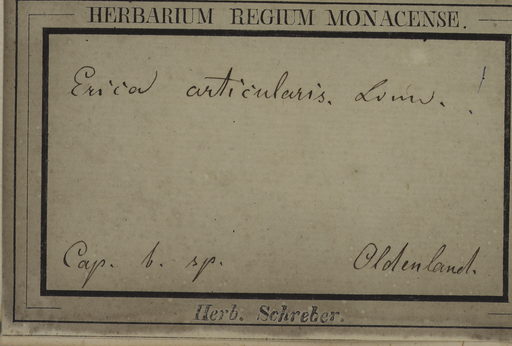 HERBARIUM REGIUM MONACENSE.
Erica articularis. Linn. !
Cap. b. sp. Oldenland.
Herb. Schreber.